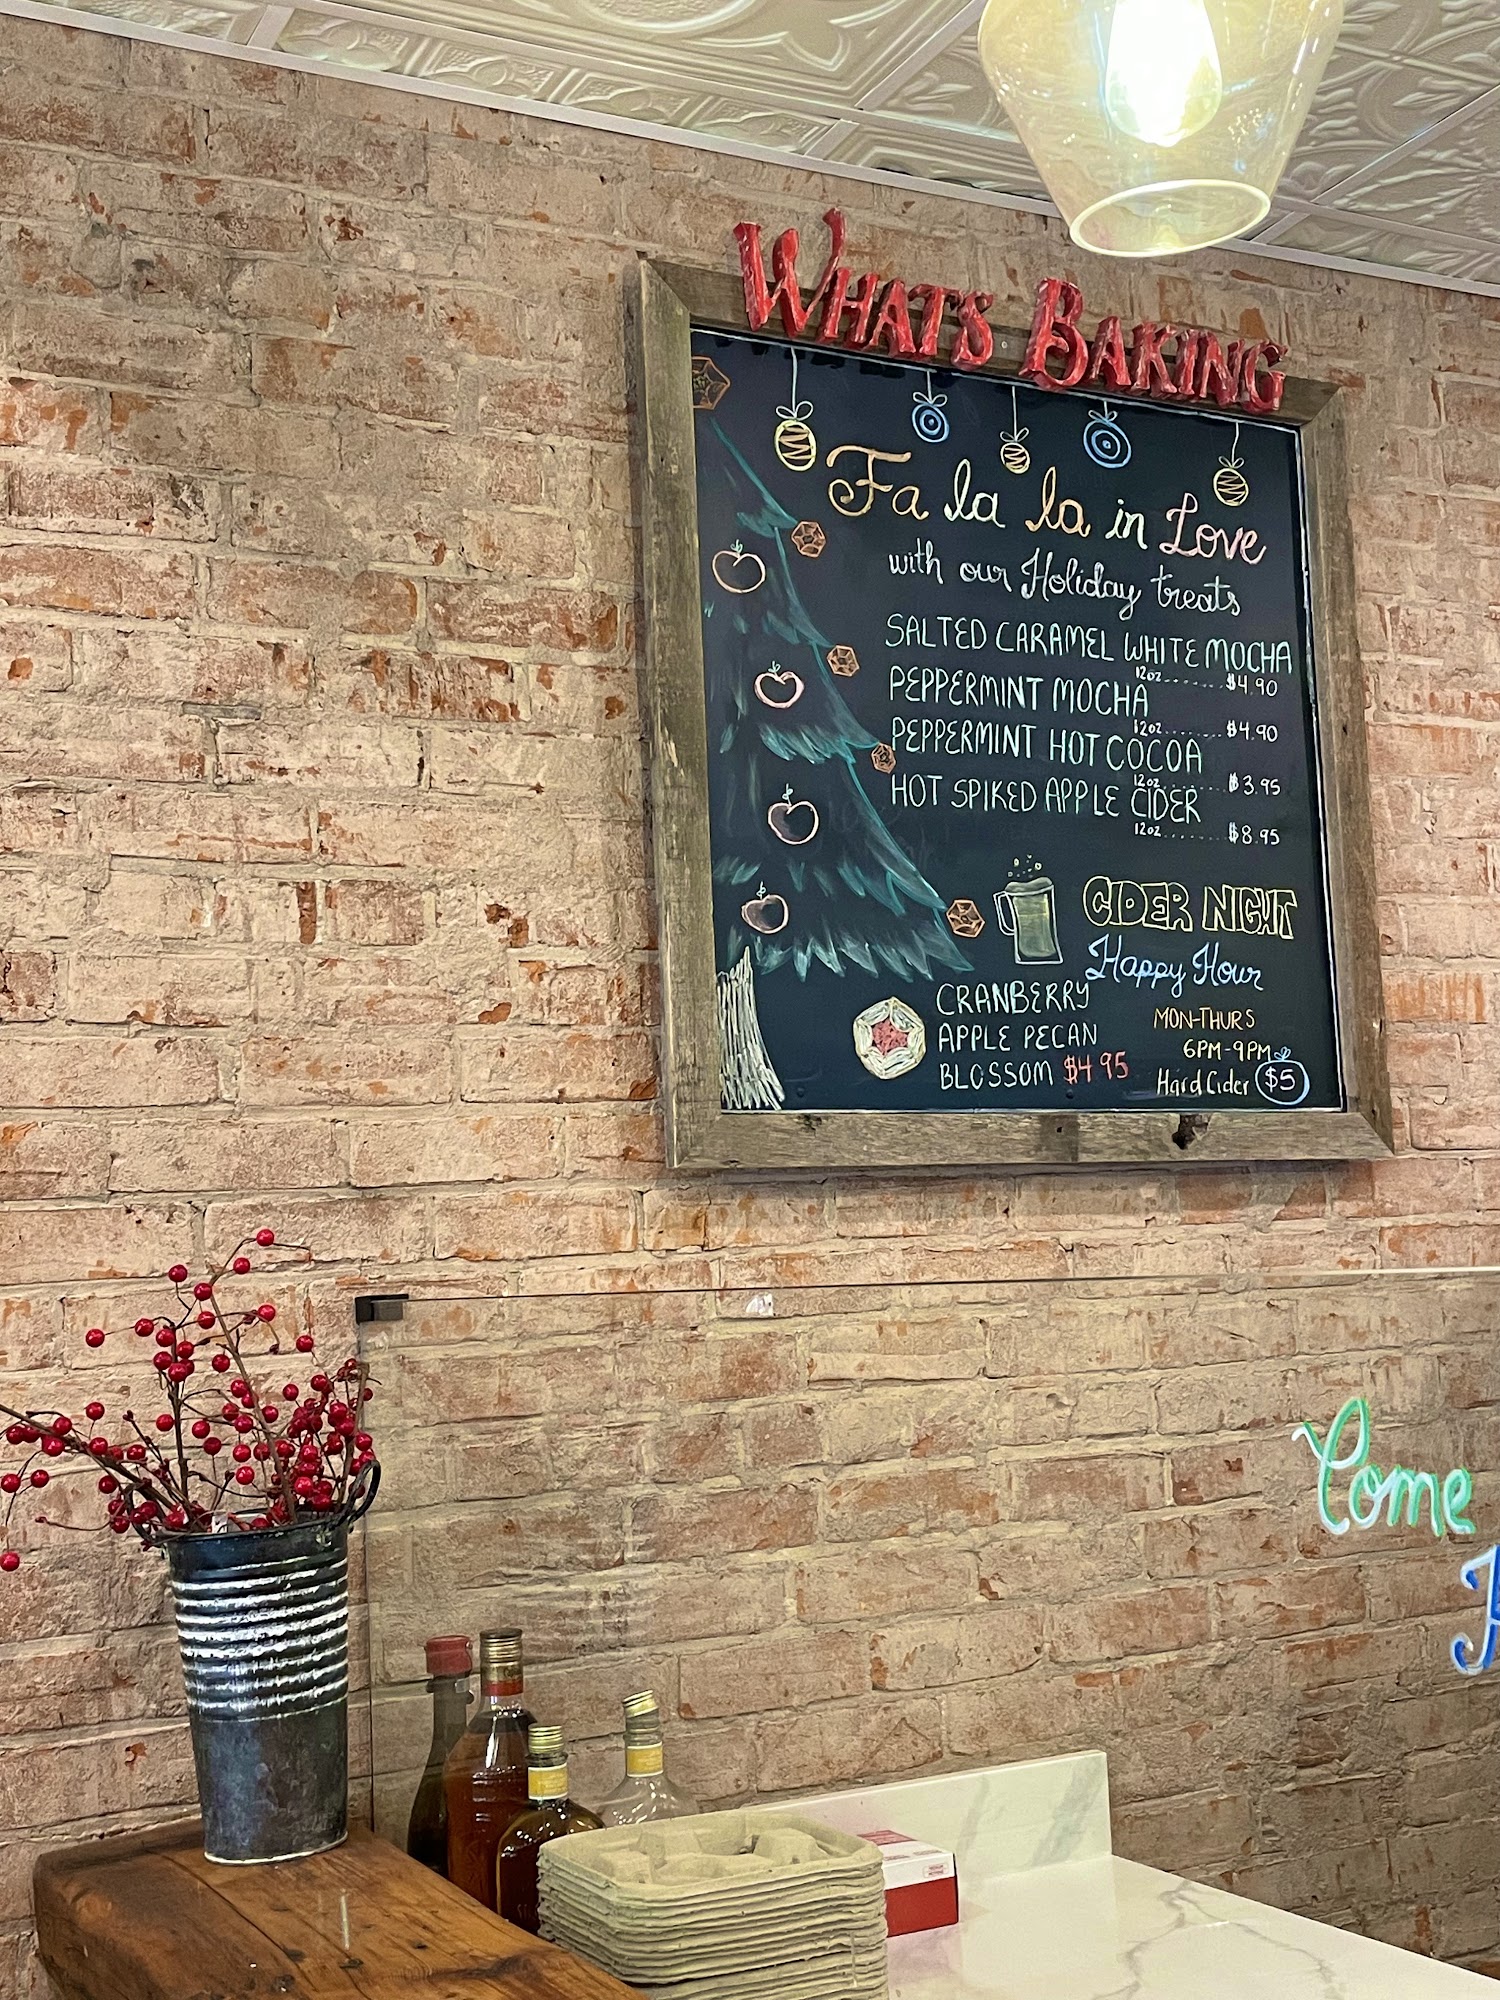 WHATS BAKING
Fa la la in Love
with our Holiday treats
SALTED CARAMEL WHITE MOCHA
12oz........$4.90
PEPPERMINT MOCHA
12oz........$4.90
PEPPERMINT HOT COCOA
12oz........$3.95
HOT SPIKED APPLE CIDER
12oz........$8.95
CIDER NIGHT
Happy Hour
MON-THURS
6PM-9PM
Hard Cider $5
CRANBERRY
APPLE PECAN
BLOSSOM $4.95
Come